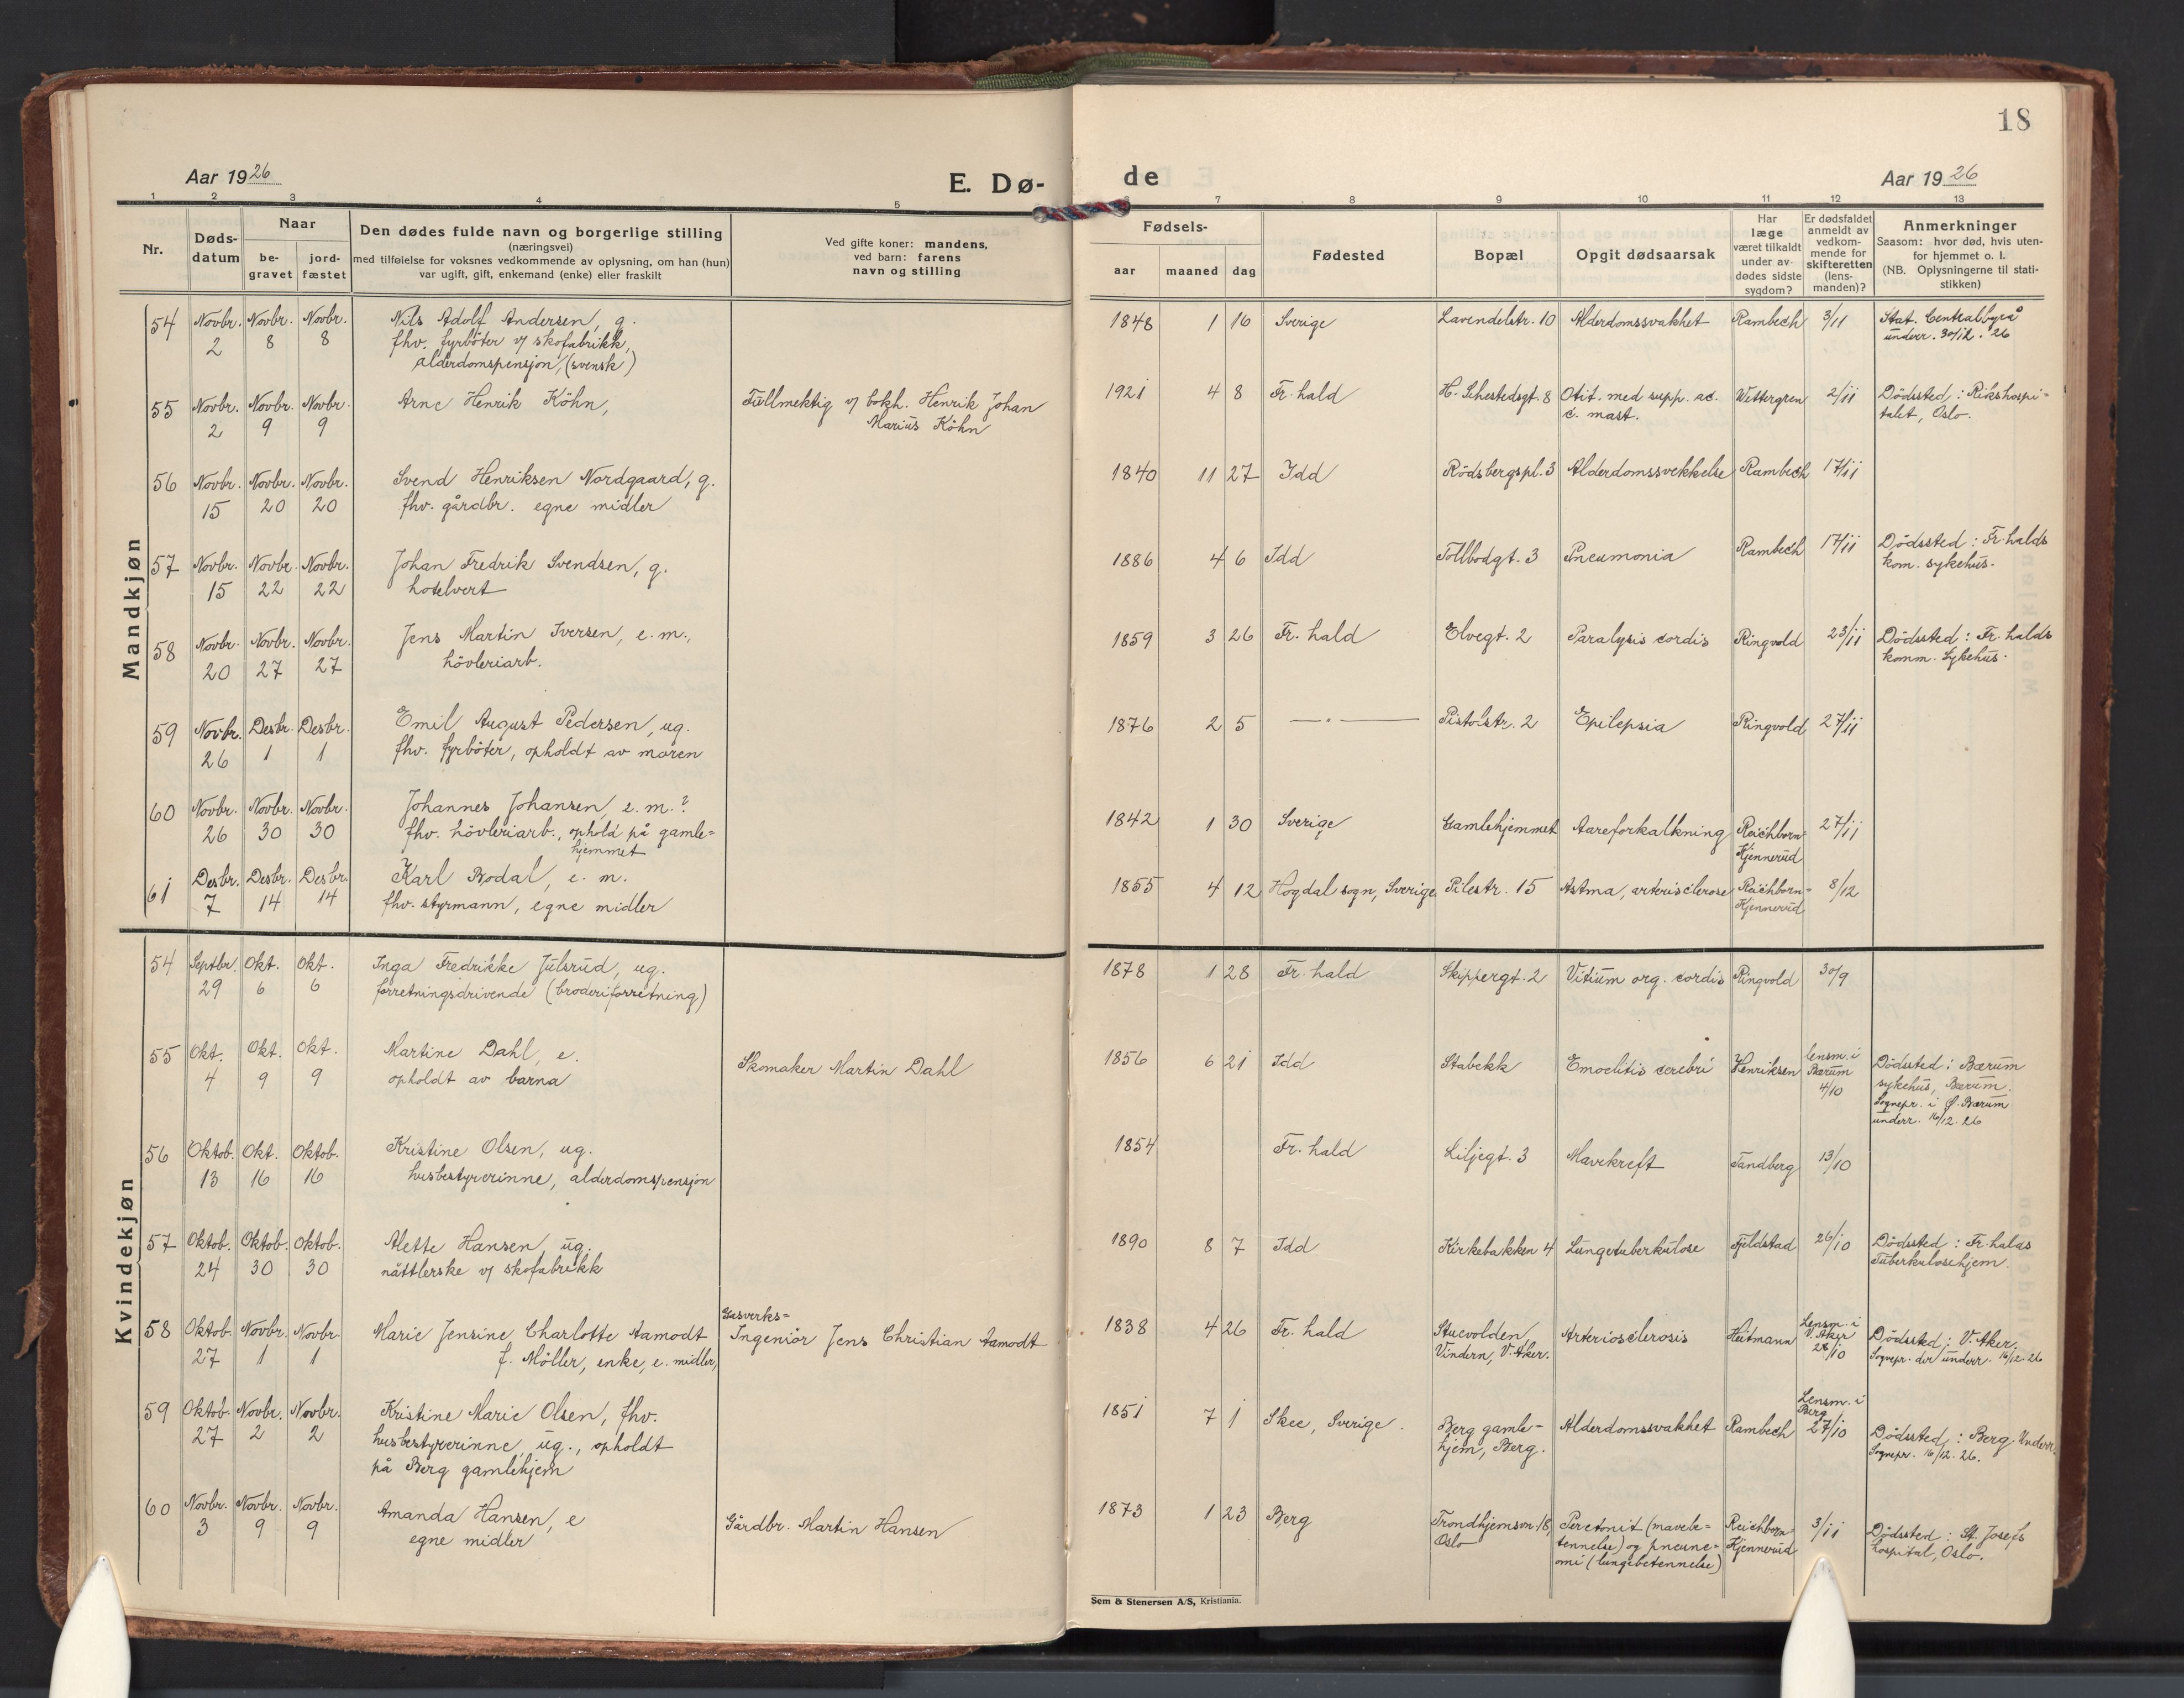 18
Aar 1926
E. Dø-
de
Aar 1926
1 2 3 4 5 6 7 8 9 10 11 12 13
Nr.
Døds-
datum
Naar
be-
gravet
jord-
fæstet
Den dødes fulde navn og borgerlige stilling
(næringsvei)
med tilføielse for voksnes vedkommende av oplysning, om han (hun)
var ugift, gift, enkemand (enke) eller fraskilt
Ved gifte koner: mandens,
ved barn: farens
navn og stilling
Fødsels-
aar maaned dag
Fødested
Bopæl
Opgit dødsaarsak
Har
læge
været tilkaldt
under av-
dødes sidste
sygdom?
Er dødsfaldet
anmeldt av
vedkom-
mende for
skifteretten
(lens-
manden)?
Anmerkninger
Saasom: hvor død, hvis uten-
for hjemmet o. l.
(NB. Oplysningerne til stati-
stikken)
Mandkjøn
54 Novbr. Novbr. Novbr. Nils Adolf Andersen, g. 1848 1 16 Sverige Lavendelstr. 10 Alderdomssvakhet Rambech 3/11 Stat. Centralbyrå
2 8 8 fhv. fyrböter v/ skofabrikk, underr. 30/12. 26
alderdomspensjon, (svensk)
55 Novbr. Novbr. Novbr. Arne Henrik Köhn, Fullmektig v/ bokh. Henrik Johan 1921 4 8 Fr. hald H. Sehestedsgt. 8 Otit. med supp. ac. Wettergren 2/11 Dödssted: Rikshospi=
2 9 9 Marius Köhn c. mast. talet, Oslo.
56 Novbr. Novbr. Novbr. Svend Henriksen Nordgaard, g. 1840 11 27 Idd Rödsbergspl. 3 Alderdomssvekkelse Rambech 17/11
15 20 20 fhv. gårdbr. egne midler
57 Novbr. Novbr. Novbr. Johan Fredrik Svendsen, g. 1886 4 6 Idd Tollbodgt. 3 Pneumonia Rambech 17/11 Dödssted: Fr. halds
15 22 22 hotelvert kom. sykehus.
58 Novbr. Novbr. Novbr. Jens Martin Iversen, e. m., 1859 3 26 Fr. hald Elvegt. 2 Paralysis cordis Ringvold 23/11 Dödssted: Fr. halds
20 27 27 hövleriarb. komm. Sykehus.
59 Novbr. Desbr. Desbr. Emil August Pedersen, ug. 1876 2 5 — „ — Pistolstr. 2 Epilepsia Ringvold 27/11
26 1 1 fhv. fyrböter, opholdt av moren
60 Novbr. Novbr. Novbr. Johannes Johansen e. m.? 1842 1 30 Sverige Gamlehjemmet Aareforkalkning Reichborn= 27/11
26 30 30 fhv. hövleriarb., ophold på gamle= Kjennerud
hjemmet
61 Desbr. Desbr. Desbr. Karl Bodal, e. m. 1855 4 12 Hogdal sogn, Sverige Pilestr. 15 Astma, arterisclerose Reichborn= 8/12
7 14 14 fhv. styrmann, egne midler Kjennerud
Kvindekjøn
54 Septbr. Okt. Okt. Inga Fredrikke Julsrud, ug. 1878 1 28 Fr. hald Skippergt. 2 Vitium org. cordis Ringvold 30/9
29 6 6 forretningsdrivende (broderiforretning)
55 Okt. Okt. Okt. Martine Dahl, e. Skomaker Martin Dahl 1856 6 21 Idd Stabekk Emoelitis cerebri Henriksen lensm. i Dödssted: Bærum
4 9 9 opholdt av barna Bærum sykehus, Bærum.
4/10 Sognepr. i Ø. Bærum
underr. 16/12. 26
56 Oktob. Okt. Oktob. Kristine Olsen, ug. 1854 Fr. hald Liljegt. 3 Mavekreft Tandberg 13/10
13 16 16 husbestyrerinne, alderdomspensjon
57 Oktob. Oktob. Oktob. Alette Hansen, ug. 1890 8 7 Idd Kirkebakken 4 Lungetuberkulose Fjeldstad 26/10 Dödssted: Fr. halds
24 30 30 nåttlerske v/ skofabrikk Tuberkulosehjem.
58 Oktob. Novbr. Novbr. Marie Jensine Charlotte Aamodt Gasverks=
Ingeniör Jens Christian Aamodt 1838 4 26 Fr. hald Stuevolden Arteriosclerosis Heitmann Lensm. i Dödssted: V. Aker.
27 1 1 f. Möller, enke, e. midler, Vindern, V. Aker. V. Aker Sognepr. der underr. 16/12. 26
28/10
59 Oktob. Novbr. Novbr. Kristine Marie Olsen, fhv. 1851 7 1 Skee, Sverige. Berg gamle- Alderdomssvakhet Rambech Lensm. i
Berg
27/10 Dödssted: Berg. Underr.
27 2 2 husbestyrerinne, ug., opholdt hjem, Berg. Sognepr. 16/12. 26.
på Berg gamlehjem
60 Novbr. Novbr. Novbr. Amanda Hansen, e Gårdbr. Martin Hansen 1873 1 23 Berg Trondhjemsvn. 18, Peretonit (mavebe= Reichborn= 3/11 Dödssted: St. Josefs
3 9 9 egne midler Oslo tennelse) og pneune= Kjennerud hospital, Oslo.
omi (lungebetennelse)
Sem & Stenersen A/S, Kristiania.